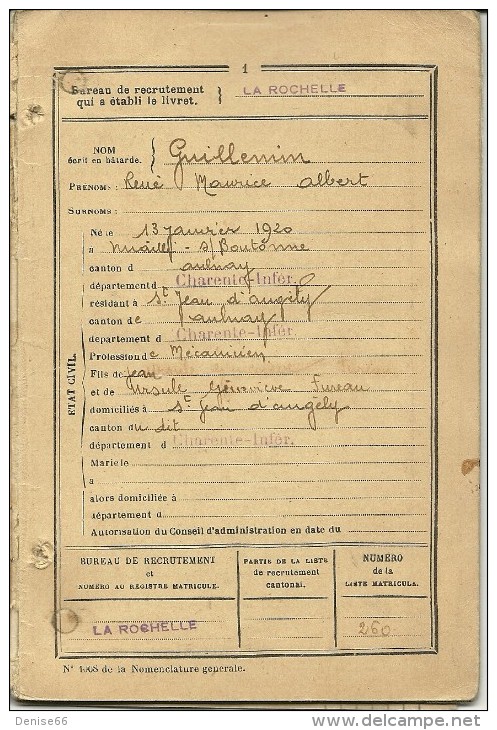 1
Bureau de recrutement
qui a établi le livret. } LA ROCHELLE
NOM
écrit en bâtarde. } Guillemin
PRÉNOMS : René Maurice Albert
SURNOMS :
ÉTAT CIVIL.
Né le 13 Janvier 1920
à S/Boutonne
canton d aulnay
département d Charente-Infér.
résidant à St Jean d'angély
canton de aulnay
département d Charente-Infér.
Profession de Mécanicien
Fils de Jean
et de Ursule Géneviève Fureau
domiciliés à St Jean d'angély
canton du dit
département d Charente-Infér.
Marié le
à
alors domiciliée à
département d
Autorisation du Conseil d'administration en date du
BUREAU DE RECRUTEMENT
et
NUMÉRO AU REGISTRE MATRICULE.
PARTIE DE LA LISTE
de recrutement
cantonal.
NUMÉRO
de la
LISTE MATRICULE.
LA ROCHELLE
260
N° 1068 de la Nomenclature générale.
Denise66
delcampe.net